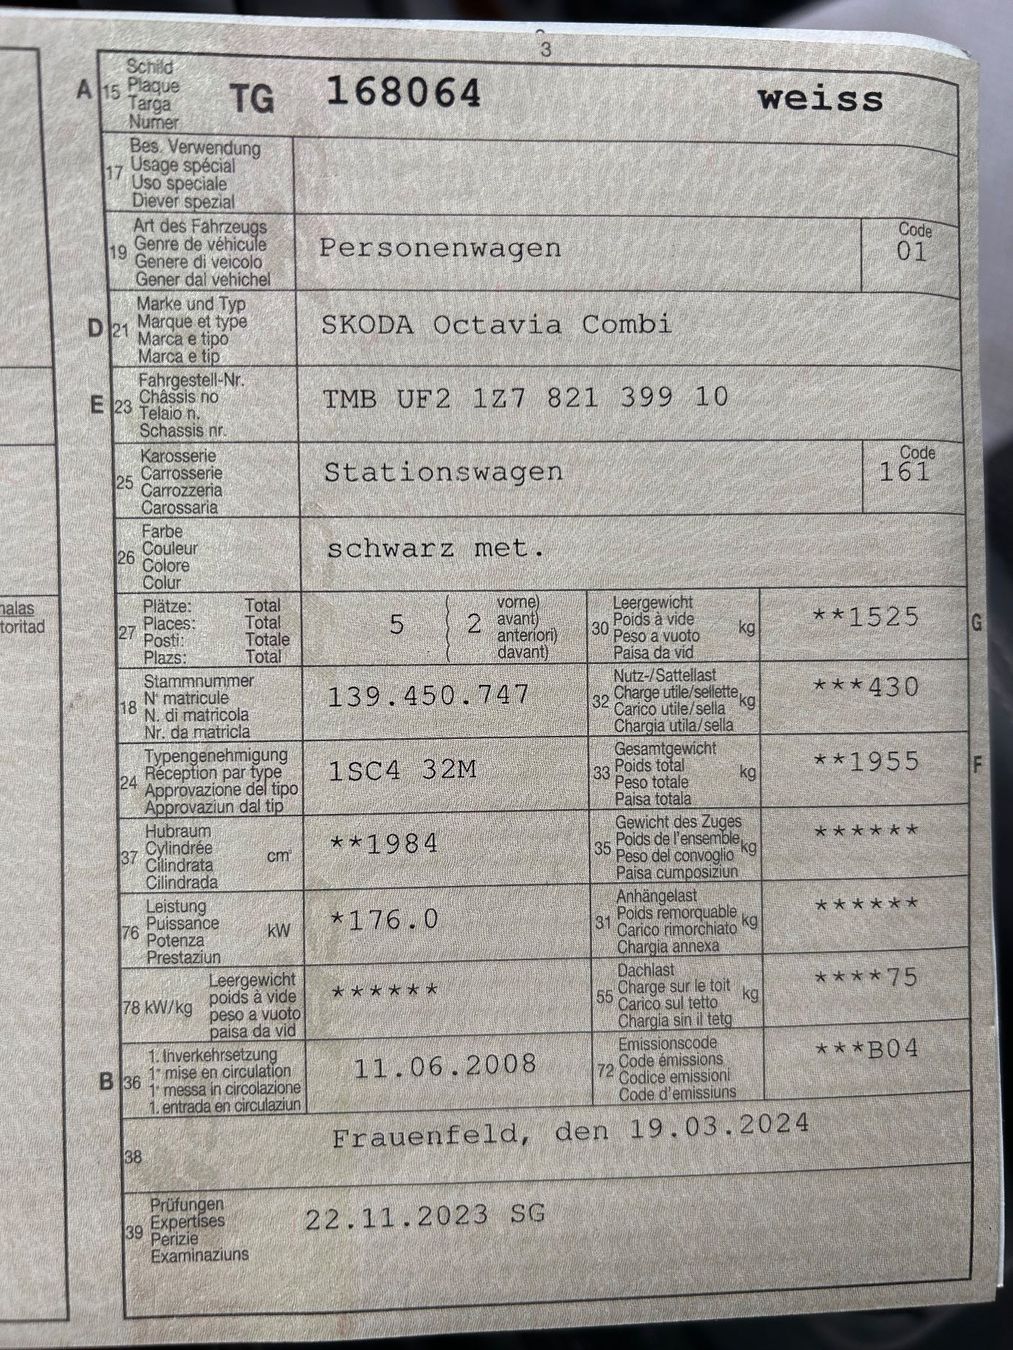 3
A 15 Schild
Plaque
Targa
Numer
TG 168064 weiss
17 Bes. Verwendung
Usage spécial
Uso speciale
Diever spezial
19 Art des Fahrzeugs
Genre de véhicule
Genere di veicolo
Gener dal vehichel
Personenwagen
Code
01
D 21 Marke und Typ
Marque et type
Marca e tipo
Marca e tip
SKODA Octavia Combi
E 23 Fahrgestell-Nr.
Châssis no
Telaio n.
Schassis nr.
TMB UF2 1Z7 821 399 10
25 Karosserie
Carrosserie
Carrozzeria
Carossaria
Stationswagen
Code
161
26 Farbe
Couleur
Colore
Colur
schwarz met.
27 Plätze: Total
Places: Total
Posti: Totale
Plazs: Total
5 ( 2 vorne)
avant)
anteriori)
davant)
30 Leergewicht
Poids à vide
Peso a vuoto
Paisa da vid
kg
**1525
G
18 Stammnummer
N° matricule
N. di matricola
Nr. da matricla
139.450.747
32 Nutz-/Sattellast
Charge utile/sellette
Carico utile/sella
Chargia utila/sella
kg
***430
24 Typengenehmigung
Réception par type
Approvazione del tipo
Approvaziun dal tip
1SC4 32M
33 Gesamtgewicht
Poids total
Peso totale
Paisa totala
kg
**1955
F
37 Hubraum
Cylindrée
Cilindrata
Cilindrada
cm³
**1984
35 Gewicht des Zuges
Poids de l'ensemble
Peso del convoglio
Paisa cumposiziun
kg
******
76 Leistung
Puissance
Potenza
Prestaziun
kW
*176.0
31 Anhängelast
Poids remorquable
Carico rimorchiato
Chargia annexa
kg
******
78 kW/kg Leergewicht
poids à vide
peso a vuoto
paisa da vid
******
55 Dachlast
Charge sur le toit
Carico sul tetto
Chargia sin il tetg
kg
****75
B 36 1. Inverkehrsetzung
1ʳᵉ mise en circulation
1ª messa in circolazione
1. entrada en circulaziun
11.06.2008
72 Emissionscode
Code émissions
Codice emissioni
Code d'emissiuns
***B04
38 Frauenfeld, den 19.03.2024
39 Prüfungen
Expertises
Perizie
Examinaziuns
22.11.2023 SG